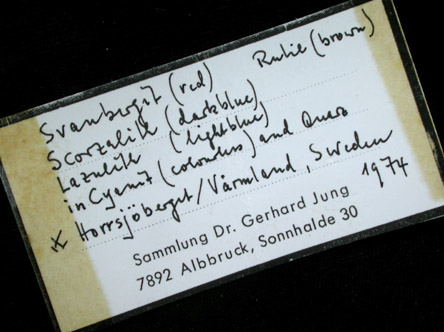 Svanbergit (red) Rutil (brown)
Scorzalite (darkblue)
Lazulite (lightblue)
in Cyanit (colourless) and Quarz
Horrsjöberget/Värmland, Sweden
1974
Sammlung Dr. Gerhard Jung
7892 Albbruck, Sonnhalde 30